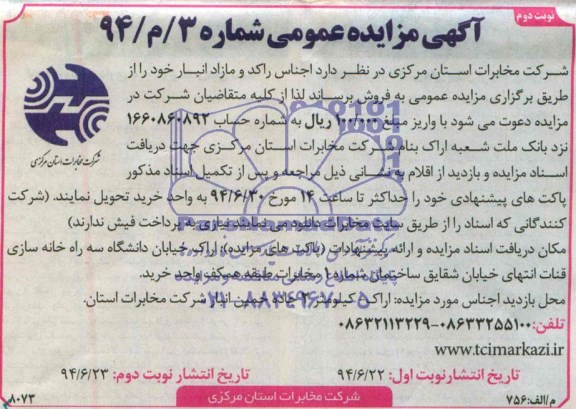 نوبت دوم
آگهی مزایده عمومی شماره ۳/م/۹۴
شرکت مخابرات استان مرکزی در نظر دارد اجناس راکد و مازاد انبار خود را از
طریق برگزاری مزایده عمومی به فروش برساند لذا از کلیه متقاضیان شرکت در
مزایده دعوت می شود با واریز مبلغ ۱۰۰/۰۰۰ ریال به شماره حساب ۱۶۶۰۸۶۰۸۹۲
نزد بانک ملت شعبه اراک بنام شرکت مخابرات استان مرکزی جهت دریافت
اسناد مزایده و بازدید از اقلام به نشانی ذیل مراجعه و پس از تکمیل اسناد مذکور
پاکت های پیشنهادی خود را حداکثر تا ساعت ۱۴ مورخ ۹۴/۶/۳۰ به واحد خرید تحویل نمایند. (شرکت
کنندگانی که اسناد را از طریق سایت مخابرات دانلود می نمایند نیازی به پرداخت فیش ندارند)
مکان دریافت اسناد مزایده و ارائه پیشنهادات (پاکت های مزایده): اراک خیابان دانشگاه سه راه خانه سازی
قنات انتهای خیابان شقایق ساختمان شماره ۱ مخابرات طبقه همکف واحد خرید.
محل بازدید اجناس مورد مزایده: اراک کیلومتر ۲ جاده خمین انبار شرکت مخابرات استان.
تلفن: ۰۸۶۳۳۲۵۵۱۰۰-۰۸۶۳۲۱۱۳۲۲۹
www.tcimarkazi.ir
تاریخ انتشار نوبت اول: ۹۴/۶/۲۲ تاریخ انتشار نوبت دوم: ۹۴/۶/۲۳
م/الف: ۷۵۶
شرکت مخابرات استان مرکزی
۸۰۷۳
شرکت مخابرات استان مرکزی
۰۲۱-۸۸۳۴۹۶۷۰-۵